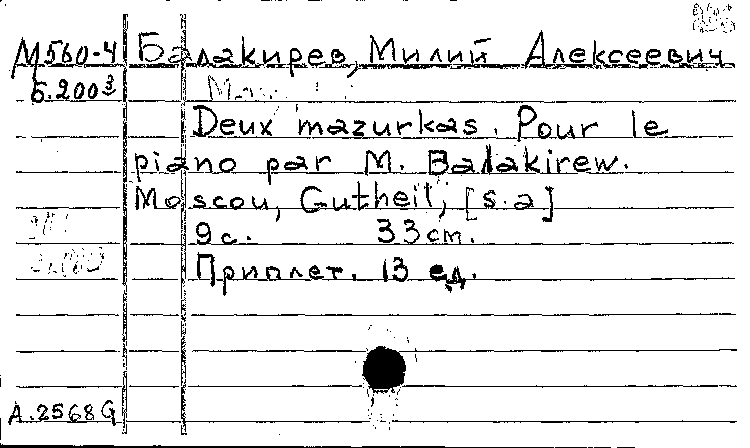 М560-4 Балакирев, Милий Алексеевич
Б.200³
Deux mazurkas. Pour le
piano par M. Balakirew.
Moscou, Gutheil, [s.a]
9с. 33см.
Приплет. 13 ед.
А.2568G